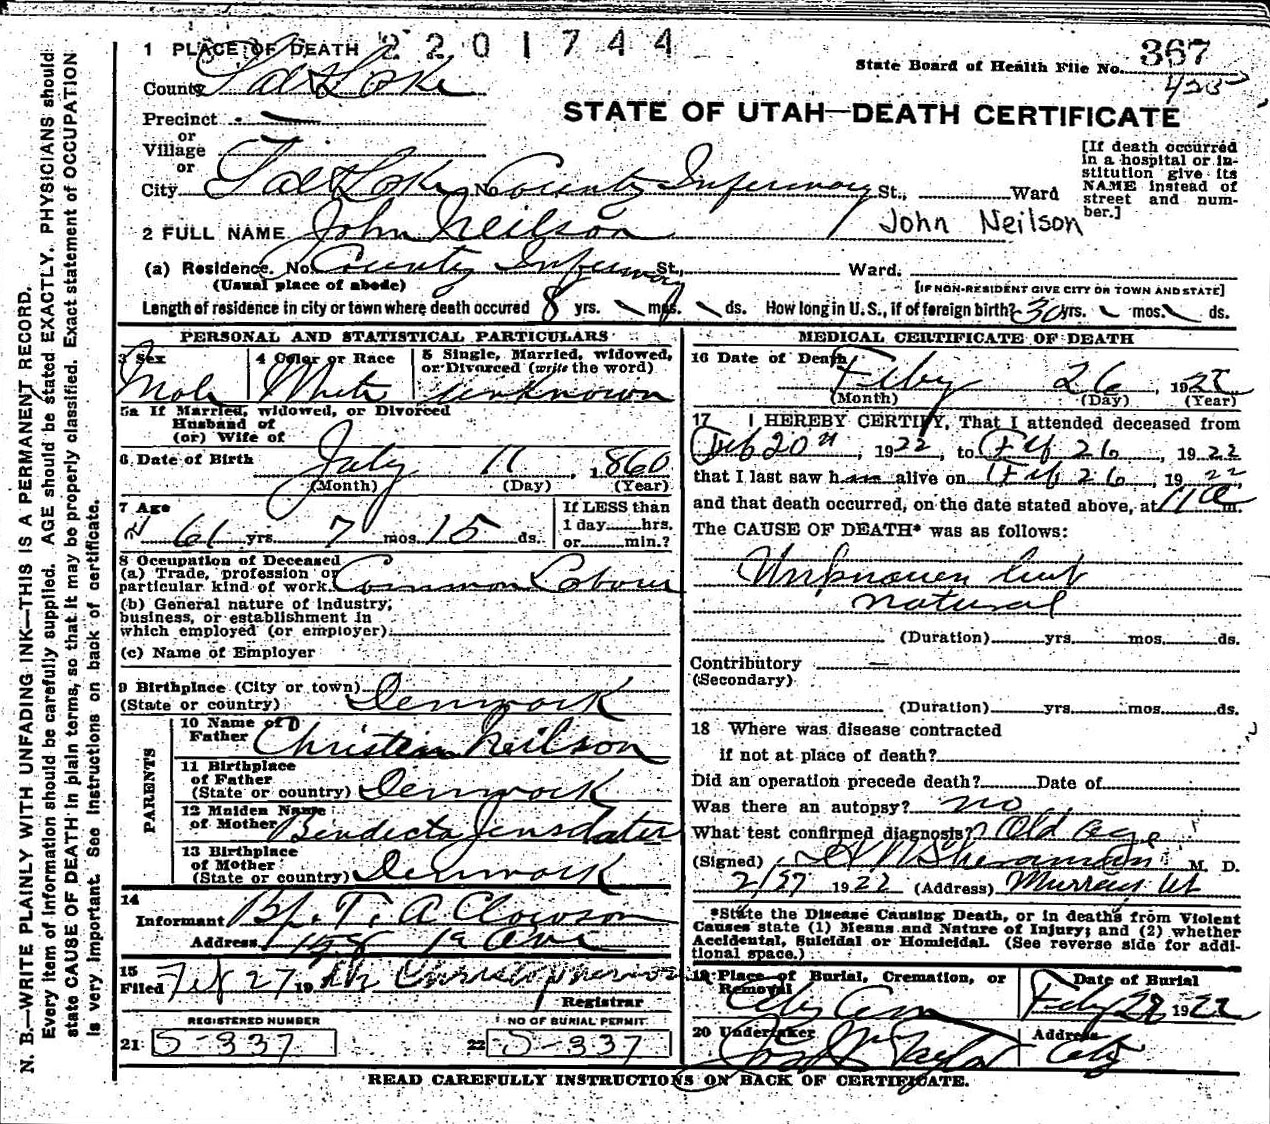 1 PLACE OF DEATH 2201744
State Board of Health File No. 367
423
County Salt Lake
STATE OF UTAH—DEATH CERTIFICATE
Precinct
or
Village
or
City Salt Lake No. County Infirmary St., Ward
[If death occurred in a hospital or institution give its NAME instead of street and number.]
2 FULL NAME John Neilson
John Neilson
(a) Residence. No. County Infirmary St., Ward.
(Usual place of abode)
[IF NON-RESIDENT GIVE CITY OR TOWN AND STATE]
Length of residence in city or town where death occured 8 yrs. mos. ds. How long in U. S., if of foreign birth? 30 yrs. mos. ds.
PERSONAL AND STATISTICAL PARTICULARS
3 Sex Male
4 Color or Race White
5 Single, Married, widowed, or Divorced (write the word) unknown
5a If Married, widowed, or Divorced
Husband of
(or) Wife of
6 Date of Birth July 11, 1860
(Month) (Day) (Year)
7 Age 61 yrs. 7 mos. 15 ds.
If LESS than 1 day hrs. or min.?
8 Occupation of Deceased
(a) Trade, profession or particular kind of work. Common Labour
(b) General nature of industry, business, or establishment in which employed (or employer)
(c) Name of Employer
9 Birthplace (City or town)
(State or country) Denmark
PARENTS
10 Name of Father Christian Neilson
11 Birthplace of Father (State or country) Denmark
12 Maiden Name of Mother Bendicta Jensdater
13 Birthplace of Mother (State or country) Denmark
14
Informant Bp. T. A. Clowson
Address 1 Ave
15
Filed Feb 27 19
Registrar
REGISTERED NUMBER
21 S-337
NO OF BURIAL PERMIT
22 S-337
MEDICAL CERTIFICATE OF DEATH
16 Date of Death Feby 26, 1922
(Month) (Day) (Year)
17 I HEREBY CERTIFY, That I attended deceased from
Feb 20th, 1922, to Feb 26, 1922
that I last saw him alive on Feb 26, 1922
and that death occurred, on the date stated above, at 11 a m.
The CAUSE OF DEATH* was as follows:
Unknown but
natural
(Duration) yrs. mos. ds.
Contributory
(Secondary)
(Duration) yrs. mos. ds.
18 Where was disease contracted
if not at place of death?
Did an operation precede death? Date of
Was there an autopsy? no
What test confirmed diagnosis? Old age
(Signed) M. D.
2/27 1922 (Address) Murray Ut
*State the Disease Causing Death, or in deaths from Violent Causes state (1) Means and Nature of Injury; and (2) whether Accidental, Suicidal or Homicidal. (See reverse side for additional space.)
19 Place of Burial, Cremation, or Removal City Cem
Date of Burial Feby 28 1922
20 Undertaker Jos Wm Taylor
Address City
READ CAREFULLY INSTRUCTIONS ON BACK OF CERTIFICATE.
N. B.—WRITE PLAINLY WITH UNFADING INK—THIS IS A PERMANENT RECORD.
Every item of information should be carefully supplied. AGE should be stated EXACTLY. PHYSICIANS should
state CAUSE OF DEATH in plain terms, so that it may be properly classified. Exact statement of OCCUPATION
is very important. See instructions on back of certificate.